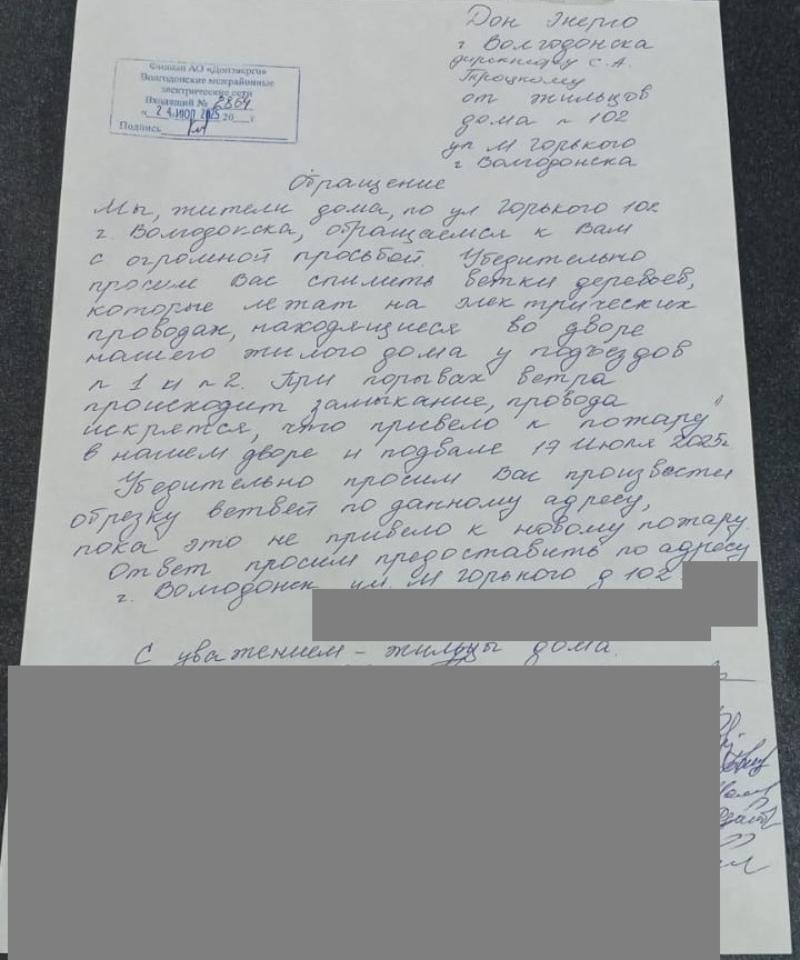 Дон Энерго
г Волгодонска
директору С.А.
Троцкому
от жильцов
дома n 102
ул М Горького
г Волгодонска
Филиал АО «Донэнерго»
Волгодонские межрайонные
электрические сети
Входящий № 2864
«24 ИЮЛ 2025 20 г
Подпись
Обращение
Мы, жители дома, по ул Горького 102
г. Волгодонска, обращаемся к Вам
с огромной просьбой. Убедительно
просим Вас спилить ветки деревьев,
которые лежат на электрических
проводах, находящиеся во дворе
нашего жилого дома у подъездов
n 1 и n 2. При порывах ветра
происходит замыкание, провода
искрятся, что привело к пожару
в нашем дворе и подвале 17 Июля 2025г
Убедительно просим Вас произвести
обрезку ветвей по данному адресу,
пока это не привело к новому пожару.
Ответ просим предоставить по адресу
г. Волгодонск ул. М Горького д 102
С уважением - жильцы дома.